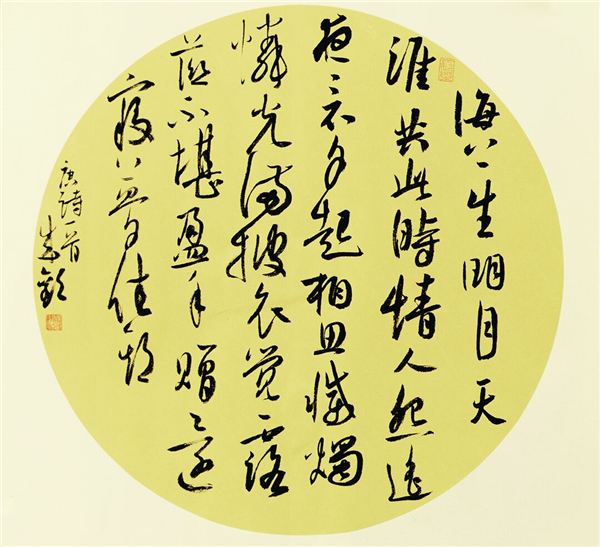 海上生明月天
涯共此時情人怨遙
夜竟夕起相思滅燭
憐光滿披衣覺露
滋不堪盈手贈還
寢夢佳期
唐詩一首
朱欽